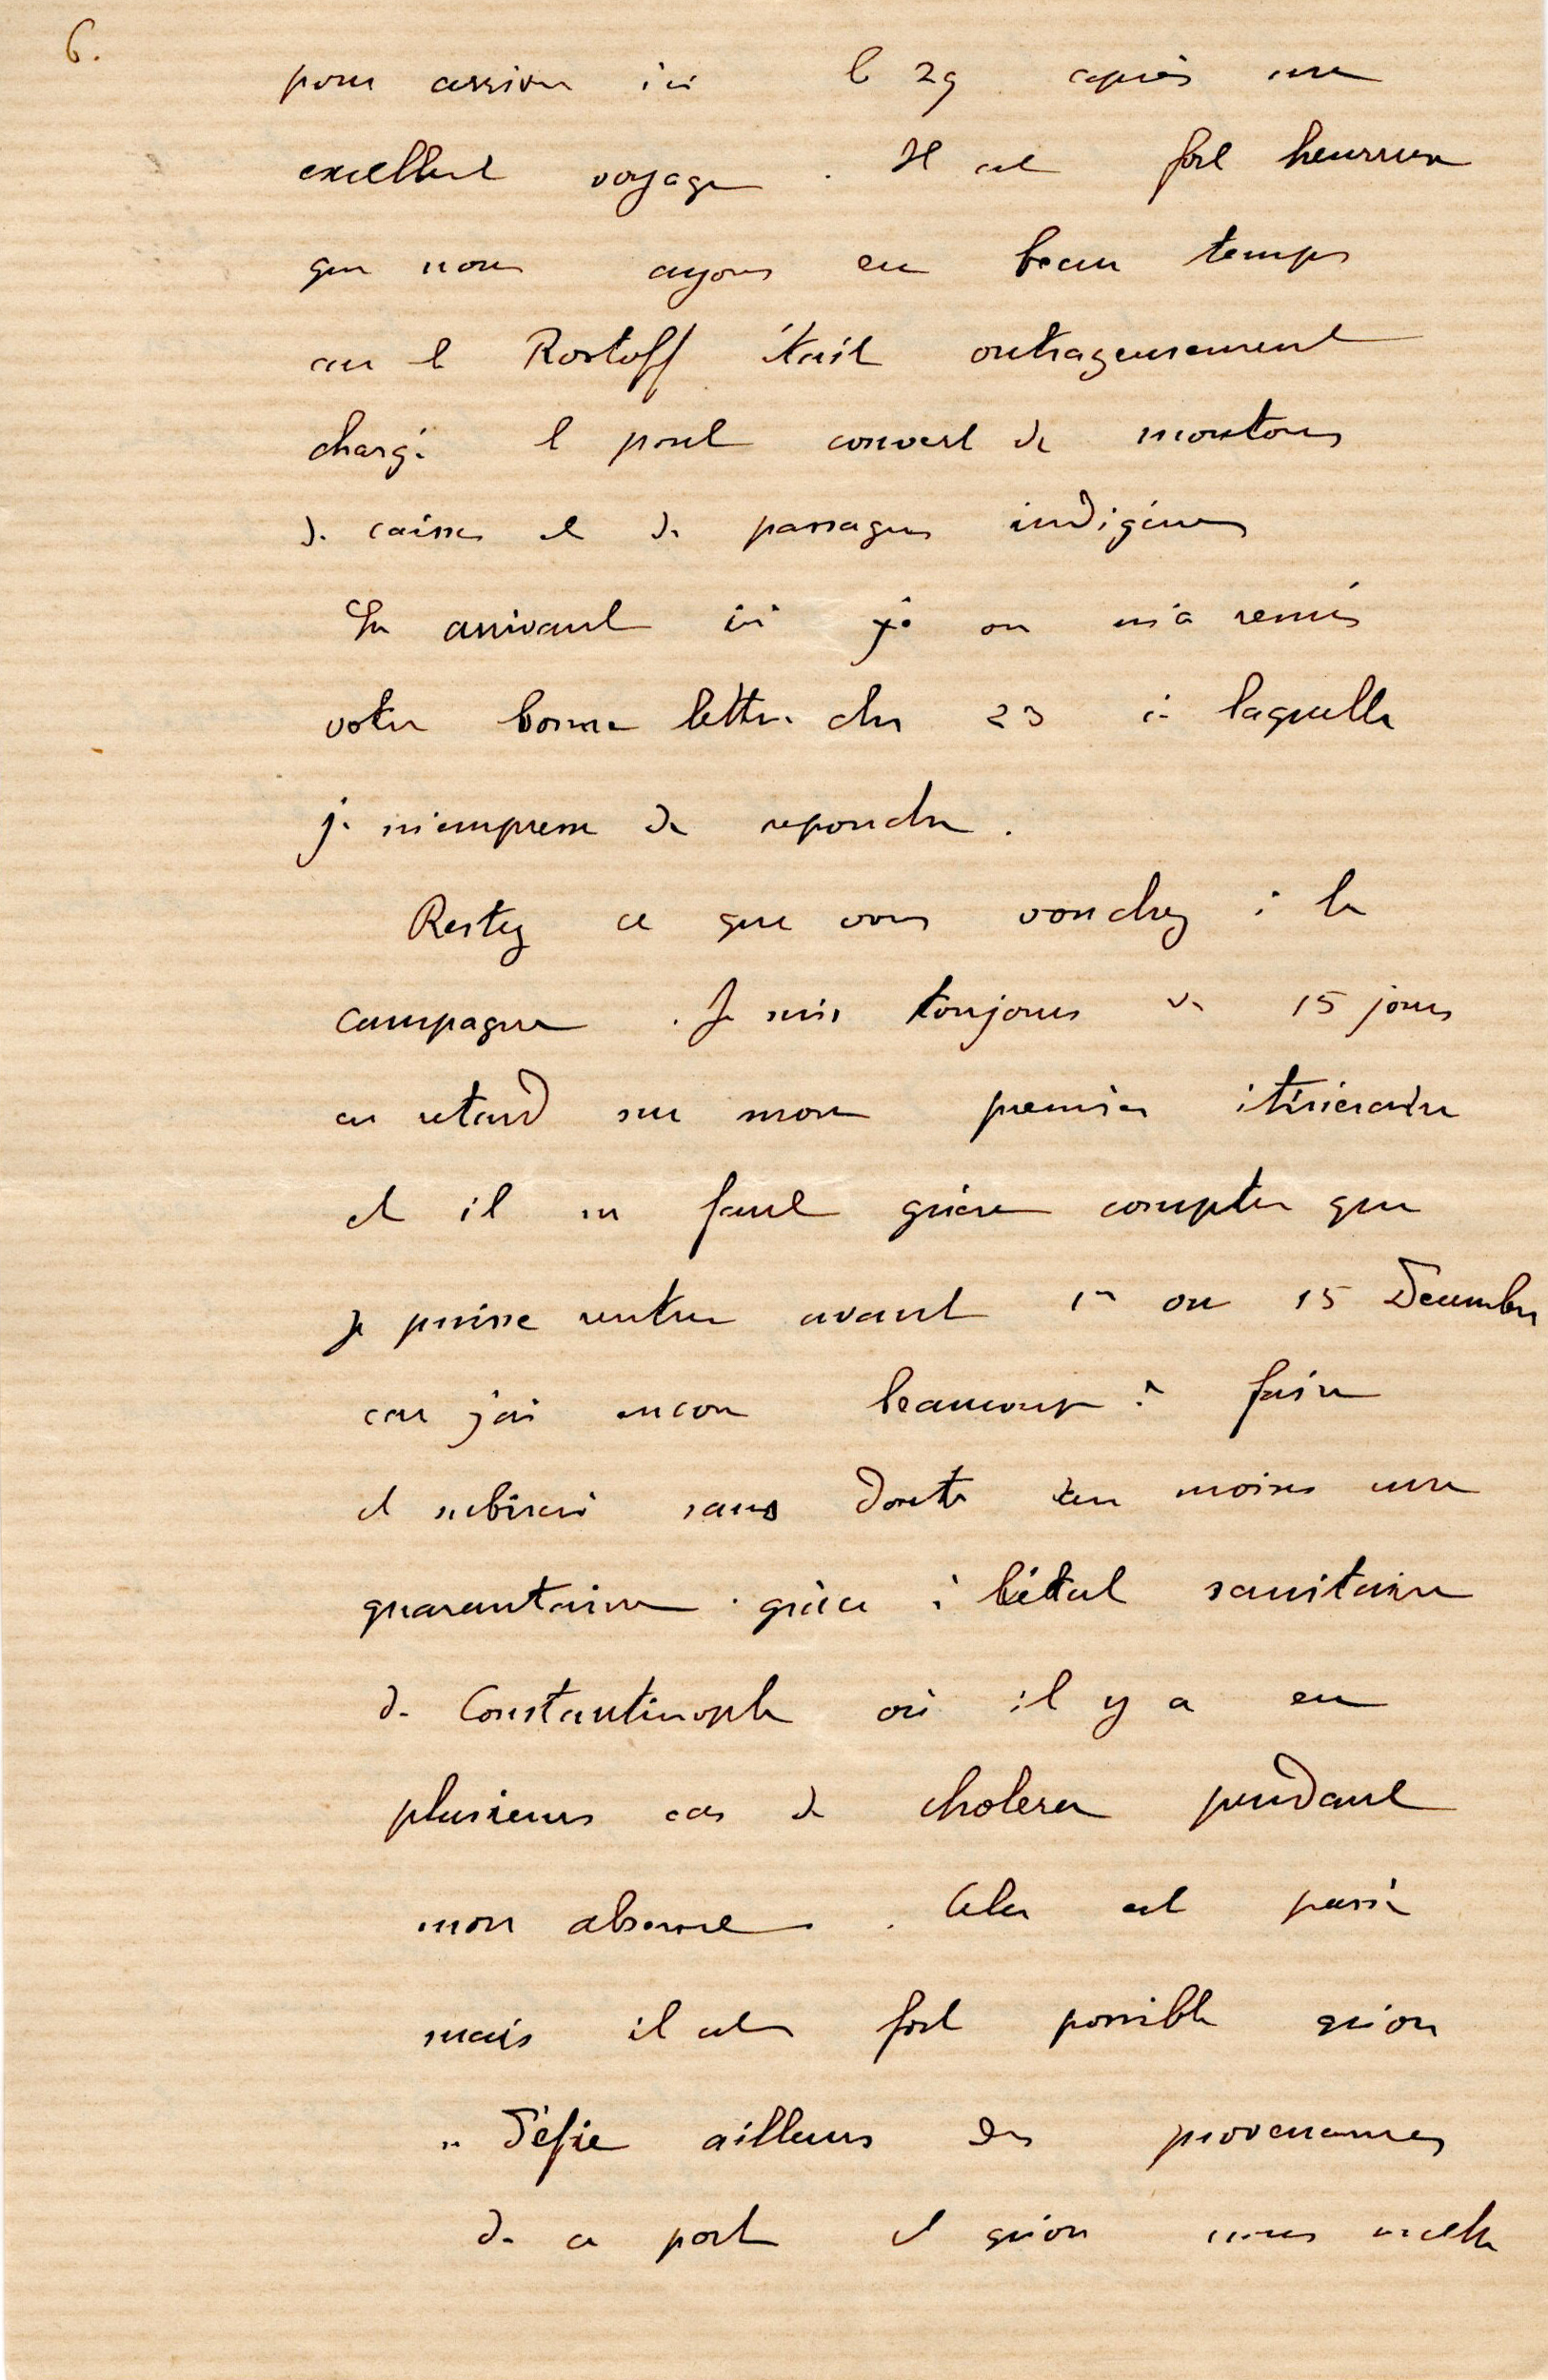 6.
pour arriver ici le 29 après un
excellent voyage. Il est fort heureux
que nous ayons eu beau temps
car le Rostoff était outrageusement
chargé le pont couvert de moutons
de caisses et de passagers indigènes
En arrivant ici je on m'a remis
votre bonne lettre du 23 à laquelle
je m'empresse de repondre.
Restez ce que vous voudrez à la
campagne. Je suis toujours de 15 jours
en retard sur mon premier itinéraire
et il ne faut guère compter que
je puisse rentrer avant 1er ou 15 Decembre
car j'ai encore beaucoup à faire
et subirai sans doute au moins une
quarantaine grâce à l'état sanitaire
de Constantinople où il y a eu
plusieurs cas de cholera pendant
mon absence. Cela est passé
mais il est fort possible qu'on
se défie ailleurs des provenances
de ce port et qu'on nous mette